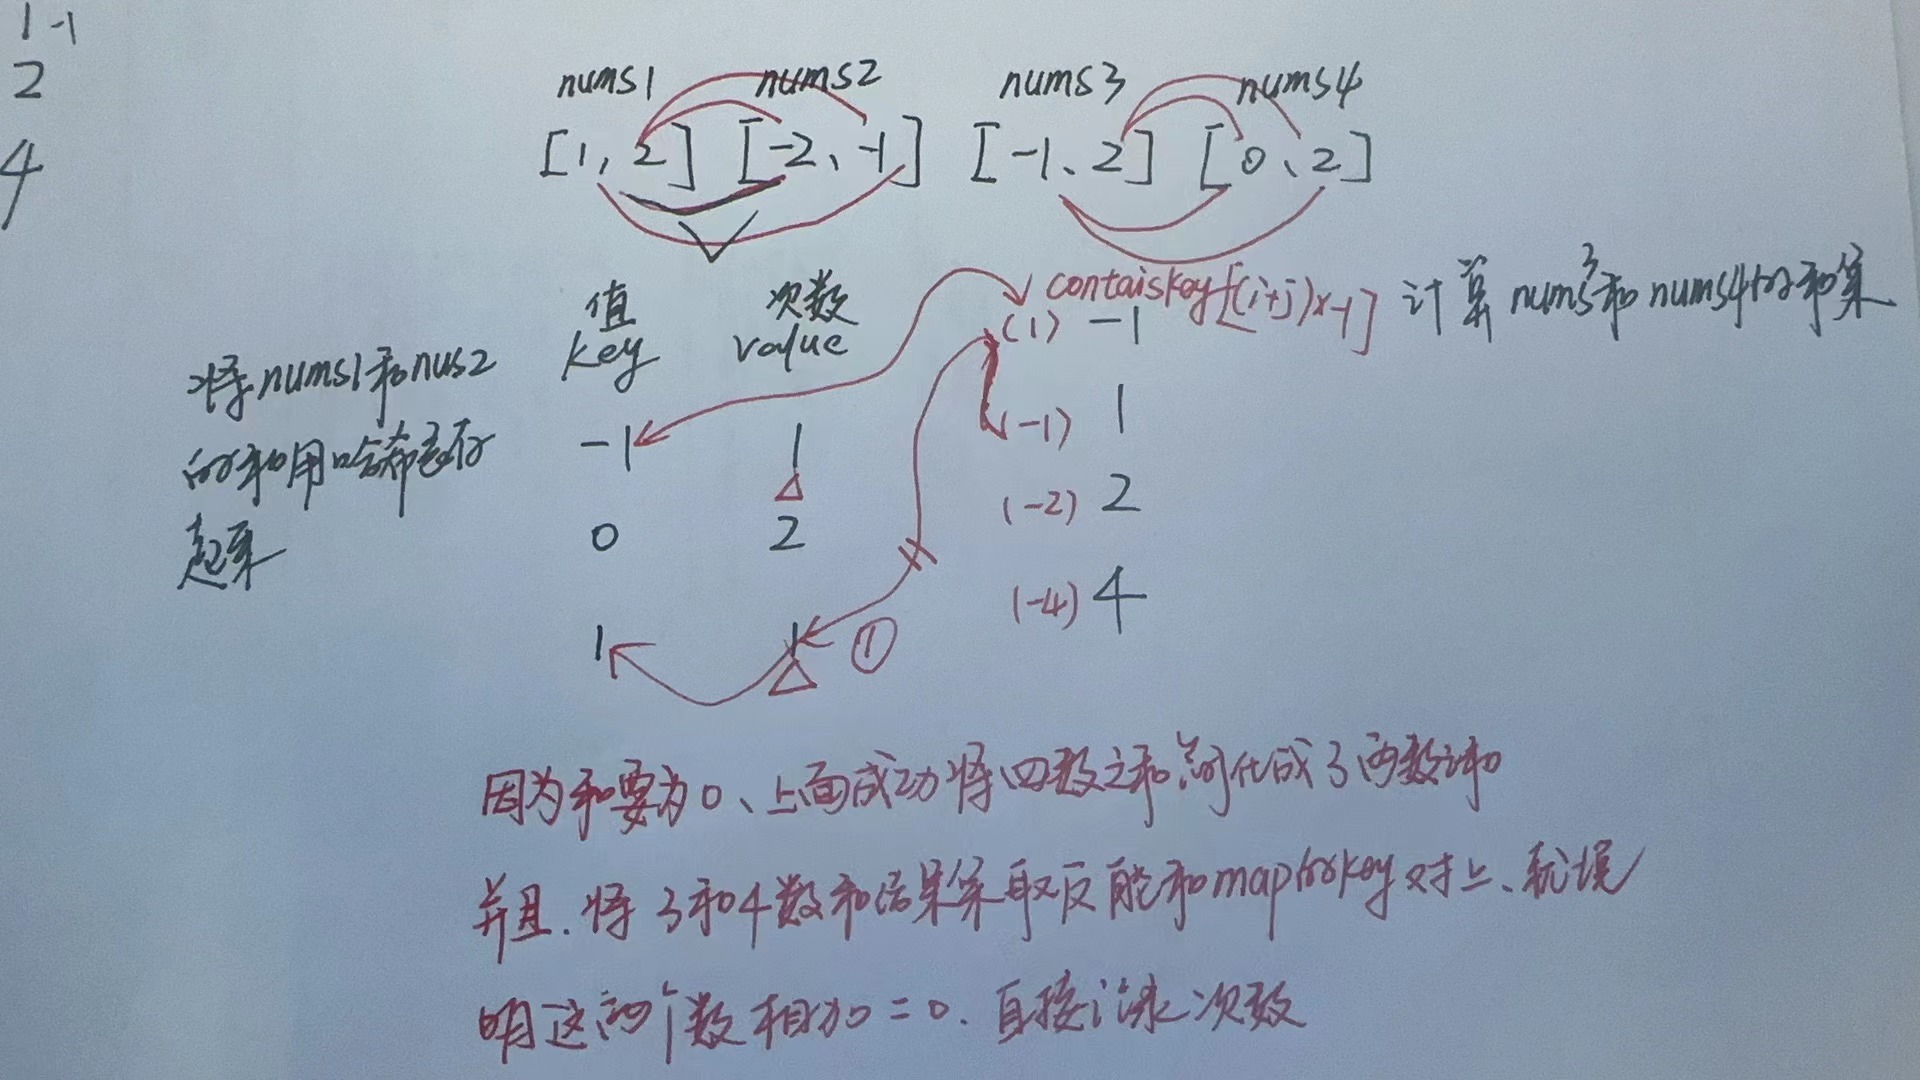 1 -1
2
4
nums1 nums2 nums3 nums4
[1, 2] [-2、-1] [-1、2] [0、2]
值 次数
key value
containskey[(i+j)×-1] 计算nums3和nums4的和集
(1) -1
将nums1和nus2
的和用哈希表存
起来
-1 1
(-1) 1
0 2
(-2) 2
(-4) 4
1 1 ①
因为和要为0、上面成功将四数之和简化成了两数之和
并且.将3和4数和结果集取反能和map的key对上、就说
明这四个数相加=0.直接记录次数